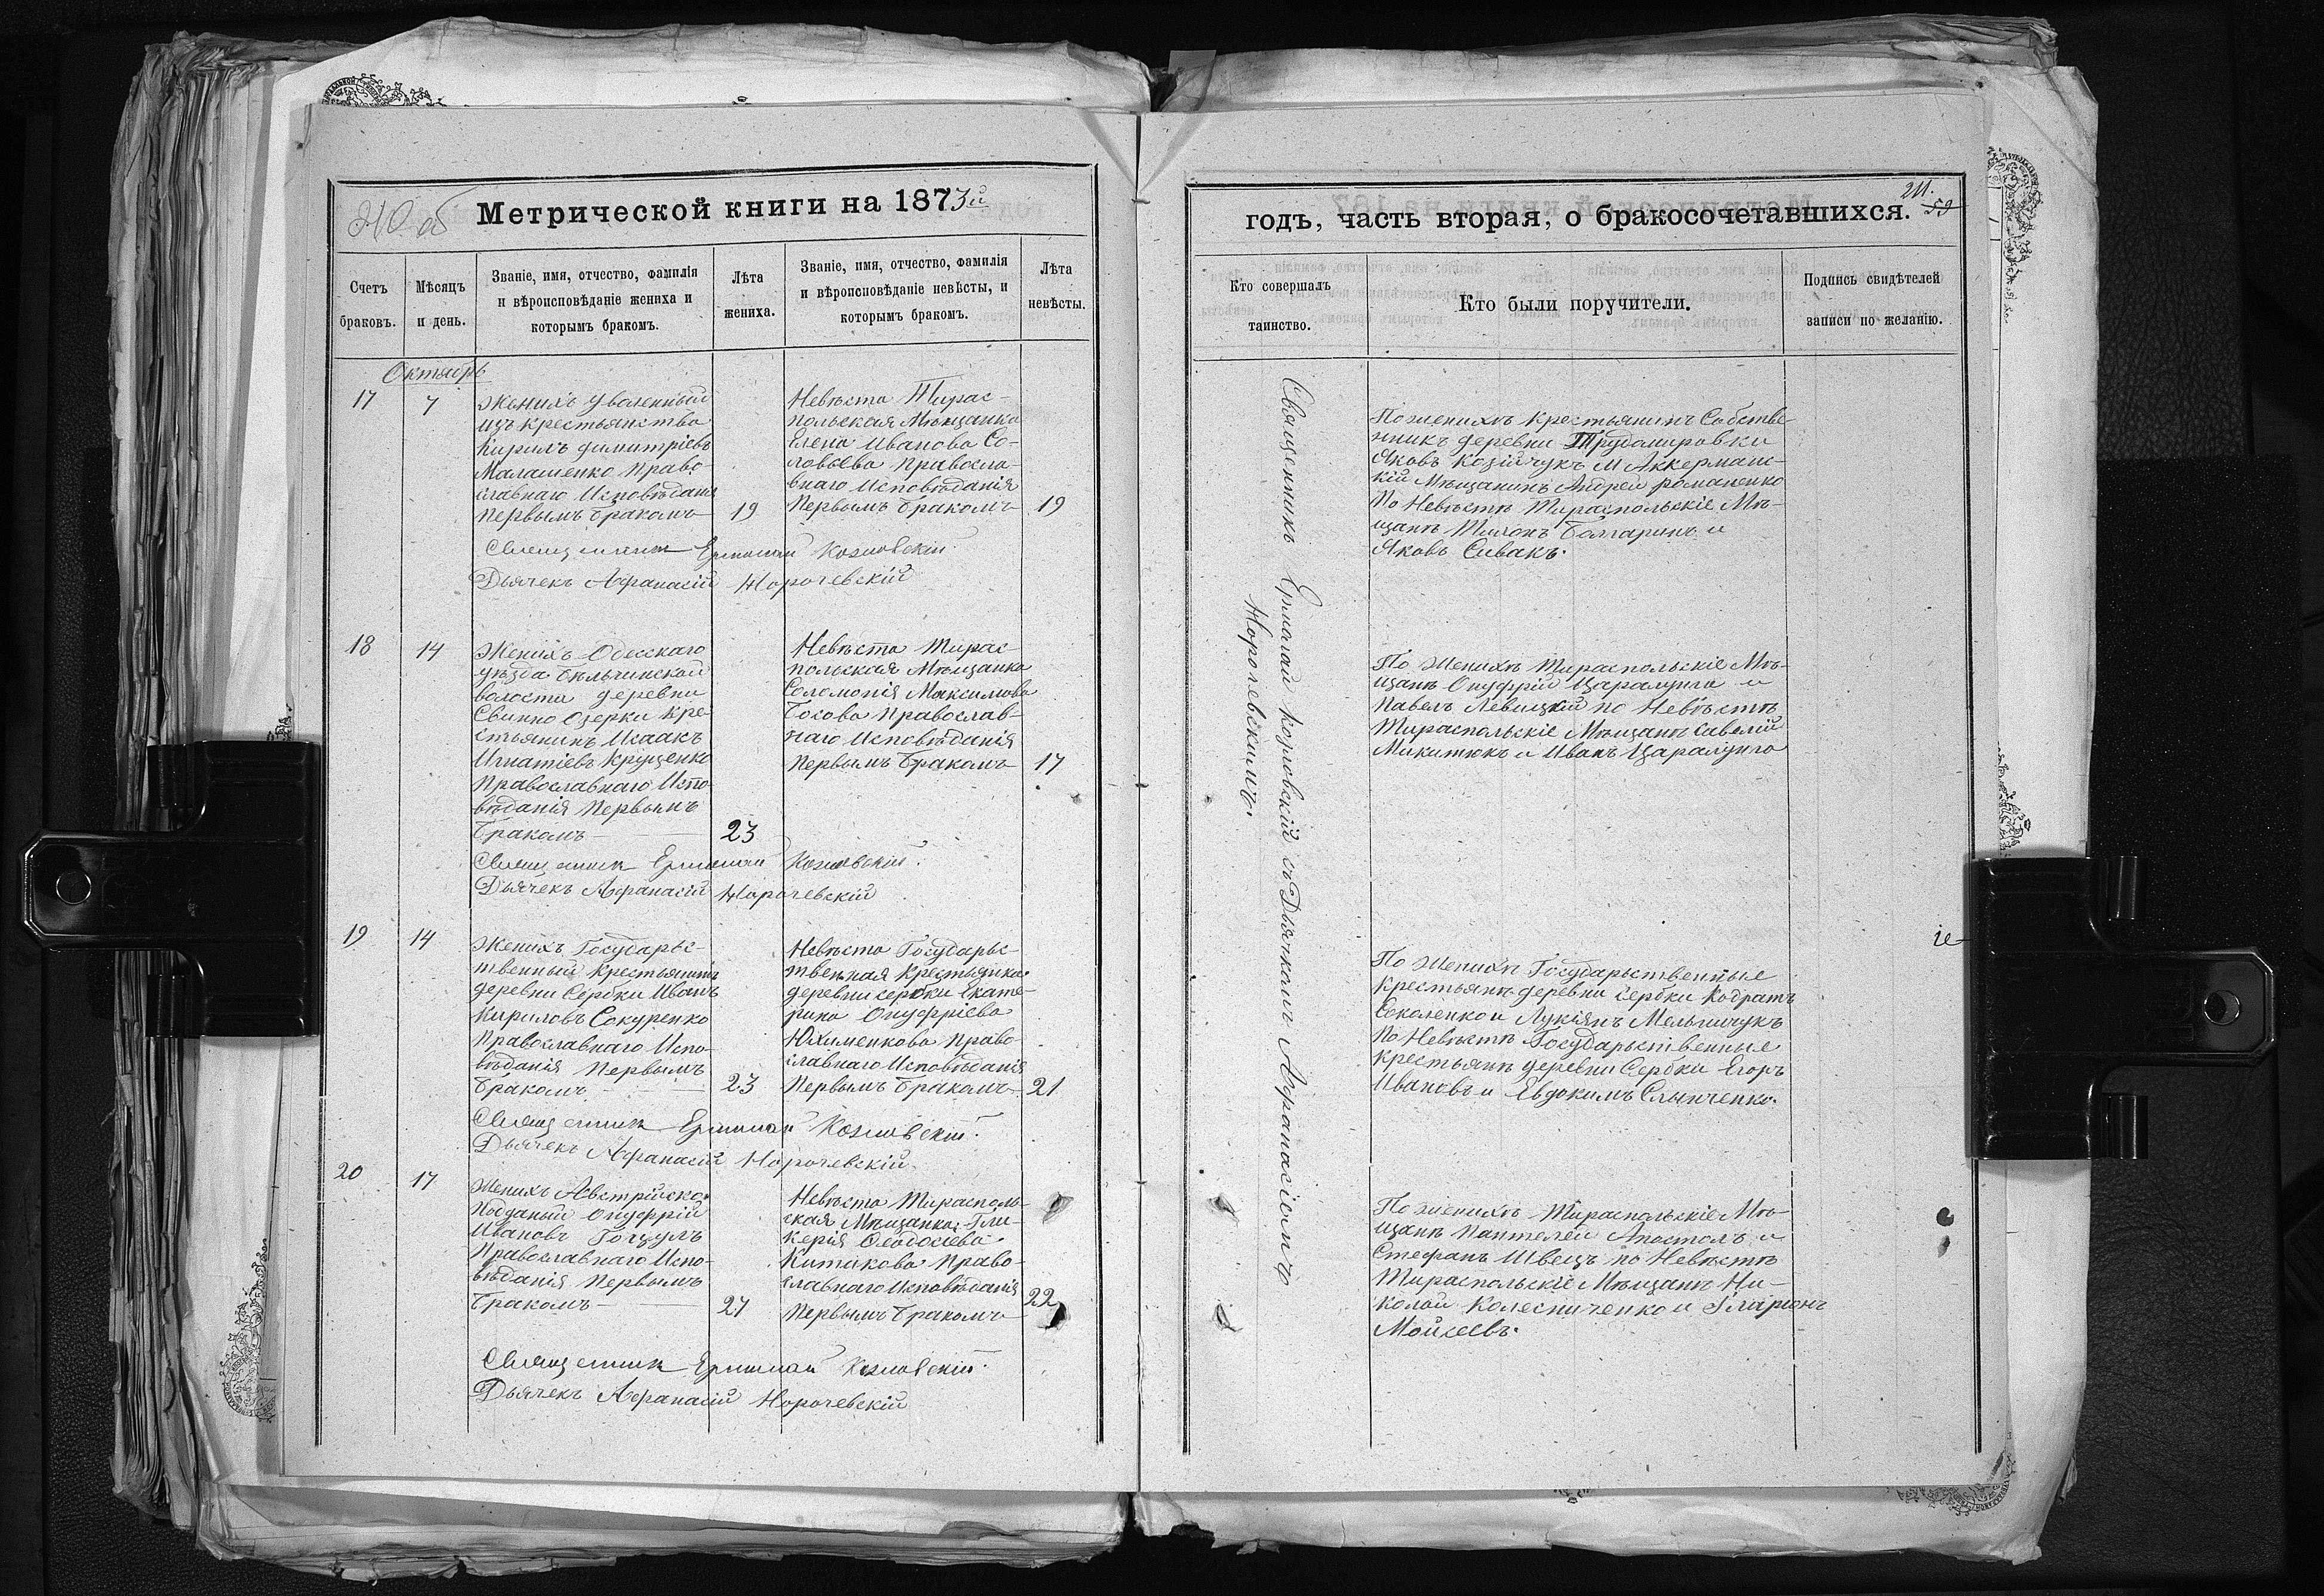 Метрической книги на 1873й
Счетъ браковъ.
Мѣсяцъ и день.
Званіе, имя, отчество, фамилія
и вѣроисповѣданіе жениха и
которымъ бракомъ.
Лѣта жениха.
Званіе, имя, отчество, фамилія
и вѣроисповѣданіе невѣсты, и
которымъ бракомъ.
Лѣта невѣсты.
Октябрь
17
7
Женихъ Уволенный
изъ крестьянства
Кирилъ Димитріевъ
Малашенко Право-
славнаго Исповѣданія
Первымъ Бракомъ
19
Невѣста Тирас-
польская Мѣщанка
Елена Иванова Со-
ловьева Правосла-
внаго Исповѣданія
Первымъ Бракомъ
19
Священникъ Ермолай Козловскій.
Дьячекъ Афанасій Норочевскій
18
14
Женихъ Одесскаго
уѣзда Бѣльчинской
волости деревни
Свинно Озерки Кре-
стьянинъ Исаакъ
Игнатіевъ Круценко
Православнаго Испо-
вѣданія Первымъ
Бракомъ
23
Невѣста Тирас-
польская Мѣщанка
Соломонія Максимова
Босова Православ-
наго Исповѣданія
Первымъ Бракомъ
17
Священникъ Ермолай Козловскій.
Дьячекъ Афанасій Норочевскій
19
14
Женихъ Государьс-
твенный Крестьянинъ
деревни Сербки Иванъ
Кириловъ Сокуренко
Православнаго Испо-
вѣданія Первымъ
Бракомъ
23
Невѣста Государьс-
твенная Крестьянка
деревни Сербки Екате-
рина Онуфріева
Юхименкова Право-
славнаго Исповѣданія
Первымъ Бракомъ
21
Священникъ Ермолай Козловскій.
Дьячекъ Афанасій Норочевскій.
20
17
Женихъ Австрійско
Подданый Онуфрій
Ивановъ Гоцулъ
Православнаго Испо-
вѣданія Первымъ
Бракомъ
27
Невѣста Тирасполь-
ская Мѣщанка Гли-
керія Ѳеодосіева
Китикова Право-
славнаго Исповѣданія
Первымъ Бракомъ
22
Священникъ Ермолай Козловскій.
Дьячекъ Афанасій Норочевскій
годъ, часть вторая, о бракосочетавшихся.
211.
59
Кто совершалъ таинство.
Кто были поручители.
Подпись свидѣтелей
записи по желанію.
Священникъ Ермолай Козловскій съ Дьячкомъ Афанасіемъ
Норочевскимъ.
По женихѣ Крестьянинъ Собстве-
нникъ деревни Трудомировки
Яковъ Козійчукъ и Аккерманс-
кій Мѣщанинъ Андрей Романенко
По Невѣстѣ Тираспольскіе Мѣ-
щане Тихонъ Болгаринъ и
Яковъ Сивакъ.
По Женихѣ Тираспольскіе Мѣ-
щане Онуфрій Царалунга и
Павелъ Левицкій по Невѣстѣ
Тираспольскіе Мѣщане Савелій
Микитюкъ и Иванъ Царалунга
По Женихѣ Государьственные
Крестьяне деревни Сербки Кодратъ
Соколенко и Лукіянъ Мельничукъ
По Невѣстѣ Государьственные
Крестьяне деревни Сербки Егоръ
Ивановъ и Евдокимъ Слынченко.
По женихѣ Тираспольскіе Мѣ-
щане Пантелей Апостолъ и
Стефанъ Швецъ по Невѣстѣ
Тираспольскіе Мѣщане Ни-
колай Колесниченко и Иларіонъ
Мойсеевъ.